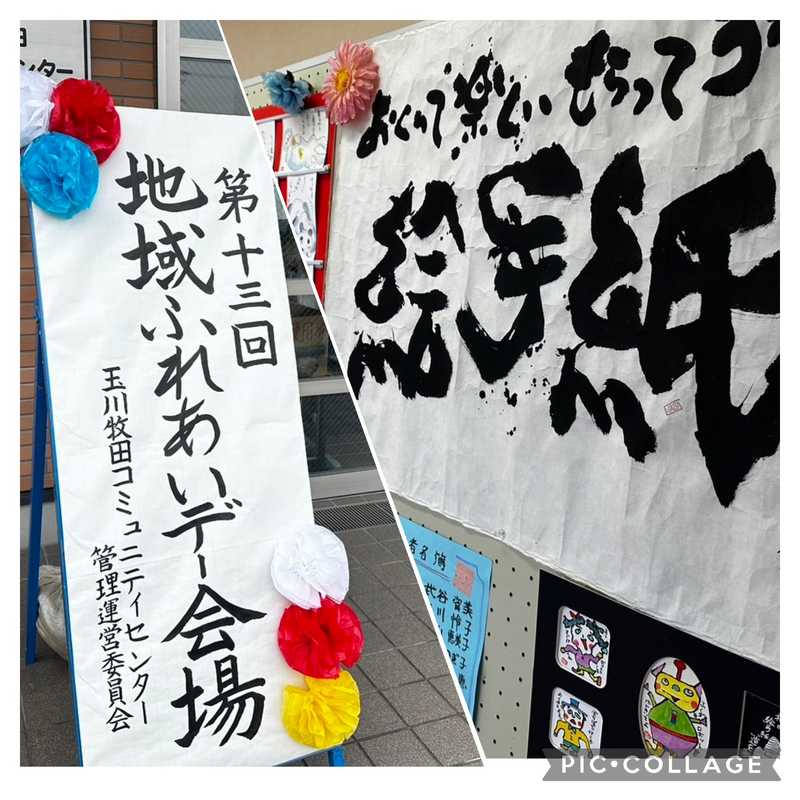 ンター
第十三回
地域ふれあいデー会場
玉川牧田コミュニティセンター
管理運営委員会
おくって楽しい もらって
絵手紙
者名簿
PIC•COLLAGE